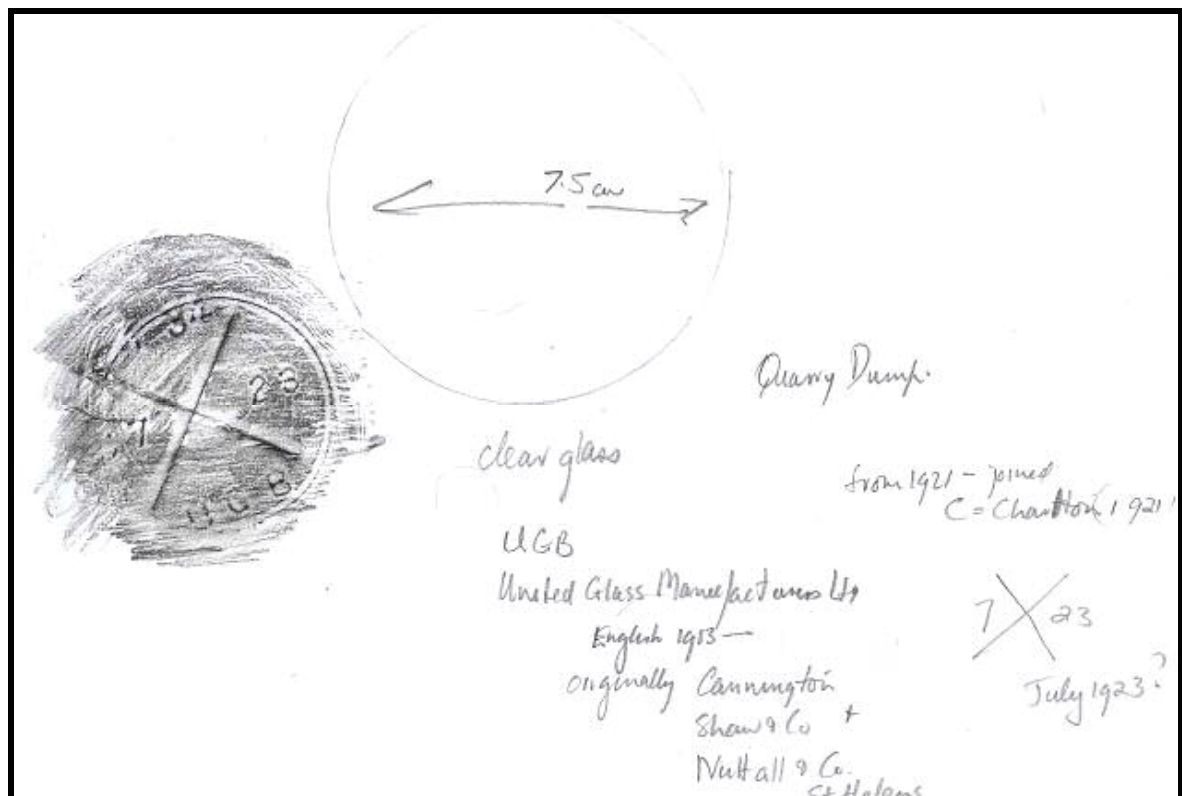 7.5 cm
23
7
UGB
Quarry Dump.
clear glass
from 1921 - joined
C = Charlton 1921
UGB
United Glass Manufacturers Ltd
English 1913 —
originally Cannington
Shaw & Co +
Nuttall & Co.
St Helens
7 X 23
July 1923?